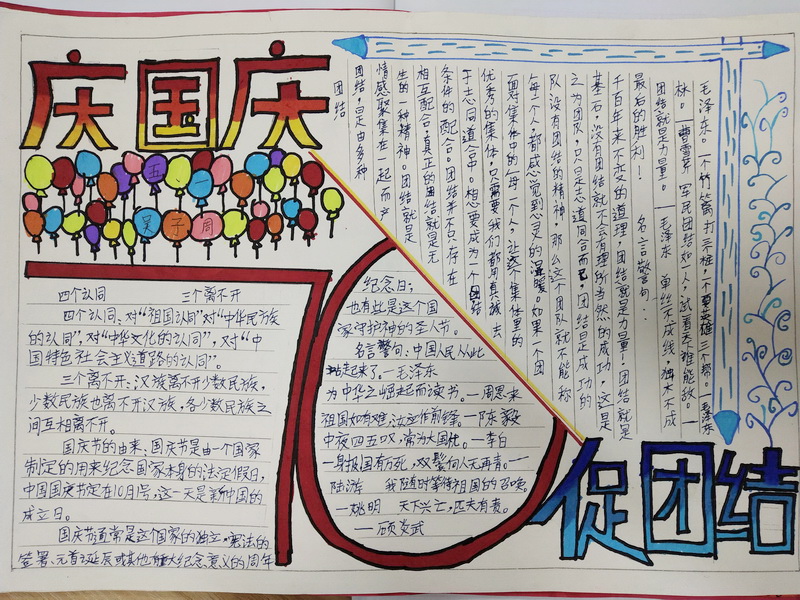 庆国庆
五一
吴子周
四个认同 三个离不开
四个认同、对“祖国认同”对“中华民族
的认同”,对“中华文化的认同”,对“中
国特色社会主义道路的认同”。
三个离不开:汉族离不开少数民族,
少数民族也离不开汉族,各少数民族之
间互相离不开。
国庆节的由来、国庆节是由一个国家
制定的用来纪念国家本身的法定假日,
中国国庆节定在10月1号,这一天是新中国的
成立日。
国庆节通常是这个国家的独立、宪法的
签署、元首诞辰或其他重大纪念意义的周年
70
纪念日;
也有些是这个国
家守护神的圣人节。
名言警句:中国人民从此
站起来了。—毛泽东
为中华之崛起而读书。—周恩来
祖国如有难,汝应作前锋。—陈毅
中夜四五叹,常为大国忧。—李白
一身报国有万死,双鬓向人无再青。—
陆游 我随时等待祖国的召唤。
—姚明 天下兴亡,匹夫有责。
—顾炎武
团结
团结,是由多种
情感聚集在一起而产
生的一种精神。团结就是
相互配合,真正的团结就是无
条件的配合。团结并不只存在
于志同道合中。想要成为一个团结
优秀的集体,只需要我们都用真诚去
面对集体中的每一个人,让这个集体里的
每个人都感觉到心灵的温暖。如果一个团
队没有团结的精神,那么这个团队就不能称
之为团队,只只是志道同合而已,团结是成功的
基石,没有团结就不会有理所当然的成功,这是
千百年来不变的道理,团结就是力量!团结就是
最后的胜利! 名言警句:
团结就是力量。—毛泽东 单丝不成线,独木不成
林。—曹雪芹 军民团结如一人,试看天下谁能敌。—
毛泽东。一个竹篱打三桩,一个英雄三个帮。—毛泽东
促团结